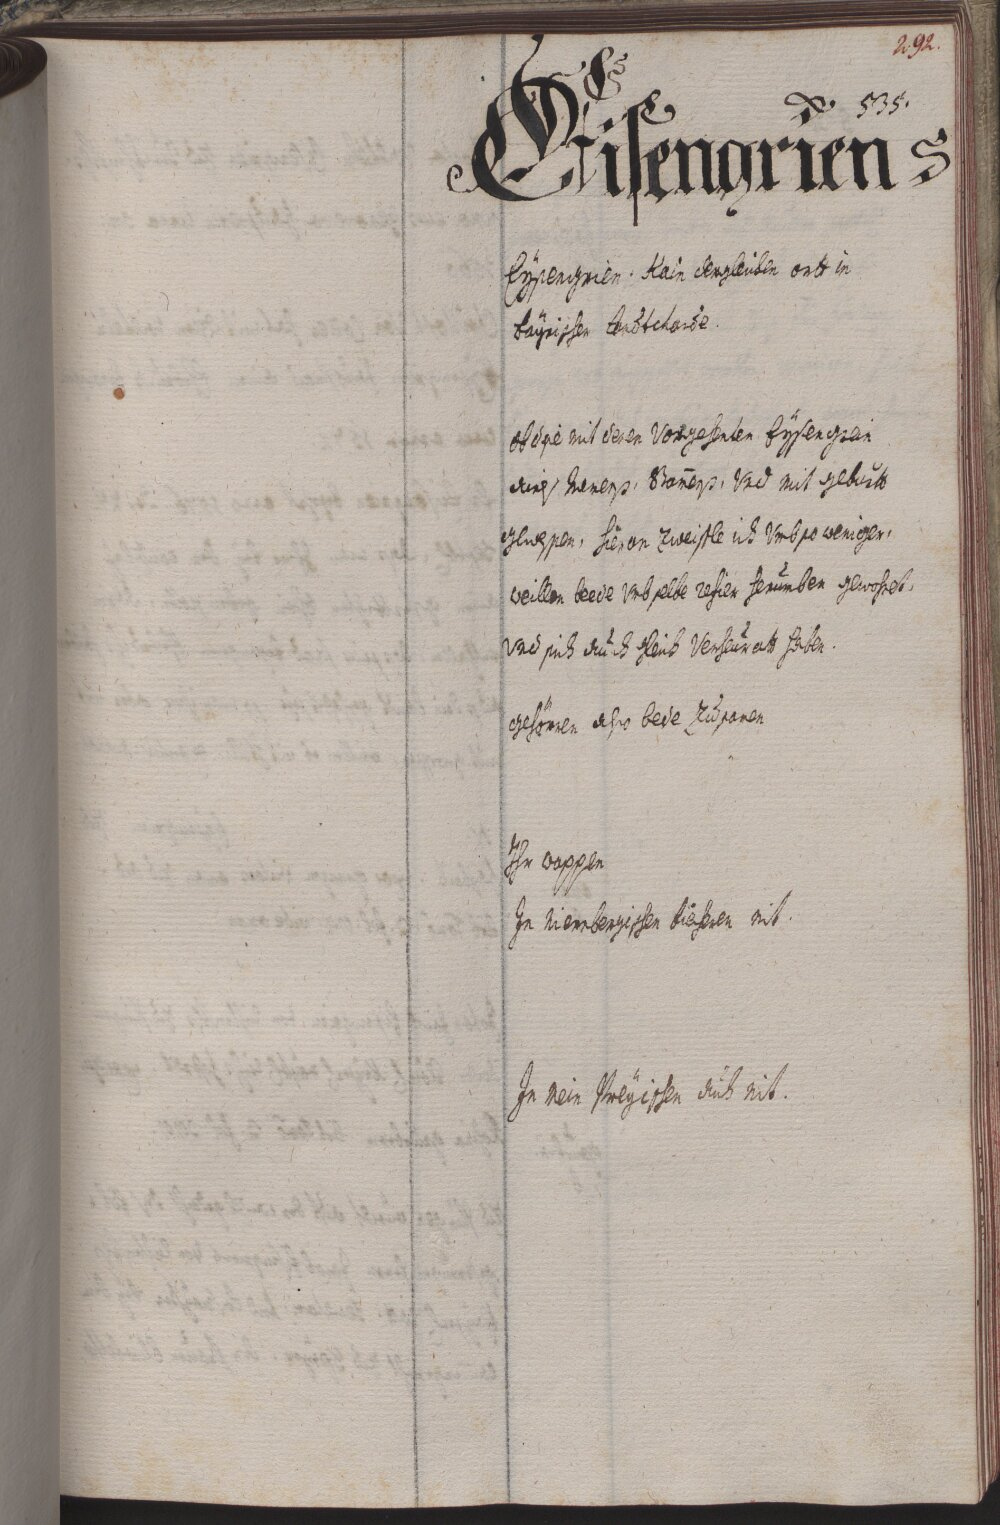 292.
535.
Eisengrien
Eÿsengrien. Kain dergleichen ortt in
bayrischer landtcharde.
ob dise mit denen Vorgesezten Eÿsengrein
aines Namens, Stamens, Vnd mit geburtt
gewesen, hieran zweifle ich Vmb so weniger,
weillen beede Vmb selbe refier herumben gewohnet,
Vnd sich auch gleich Verheuratt haben.
gehören also bede zusamen
Ihr wappen
In niernbergischen biechern nit.
In mein Preÿischen auch nit.